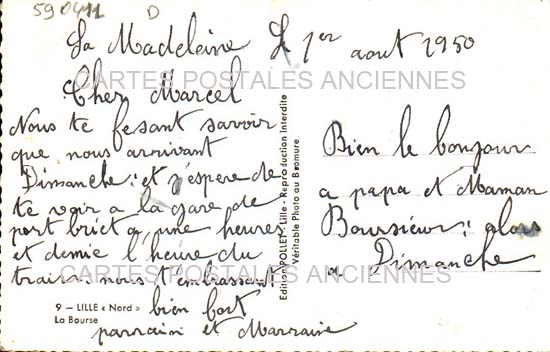 590411 D
La Madeleine L 1er aout 1950
CARTES POSTALES ANCIENNES
Cher Marcel
Nous te fesant savoir
que nous arrivant
Dimanche: et j'espere de
te voir a la gare de
port briet a une heures
et demie l'heure du
train: nous t'embrassant
bien fort
parrain et Marraine
CARTES POSTALES ANCIENNES
9 — LILLE « Nord »
La Bourse
Edition POLLET - Lille - Reproduction Interdite
Véritable Photo au Bromure
Bien le bonjour
a papa et Maman
Boursieur: alors
a Dimanche